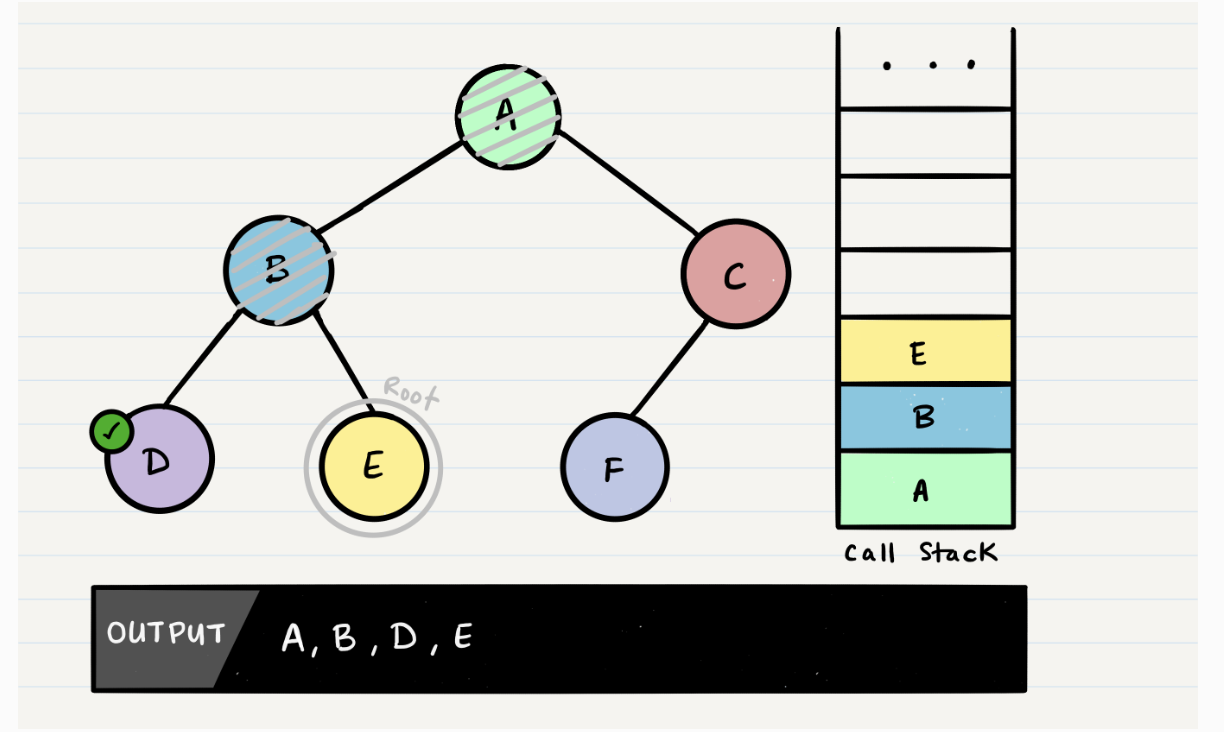 A
B
C
Root
D
E
F
. . .
E
B
A
call Stack
OUTPUT A, B, D, E